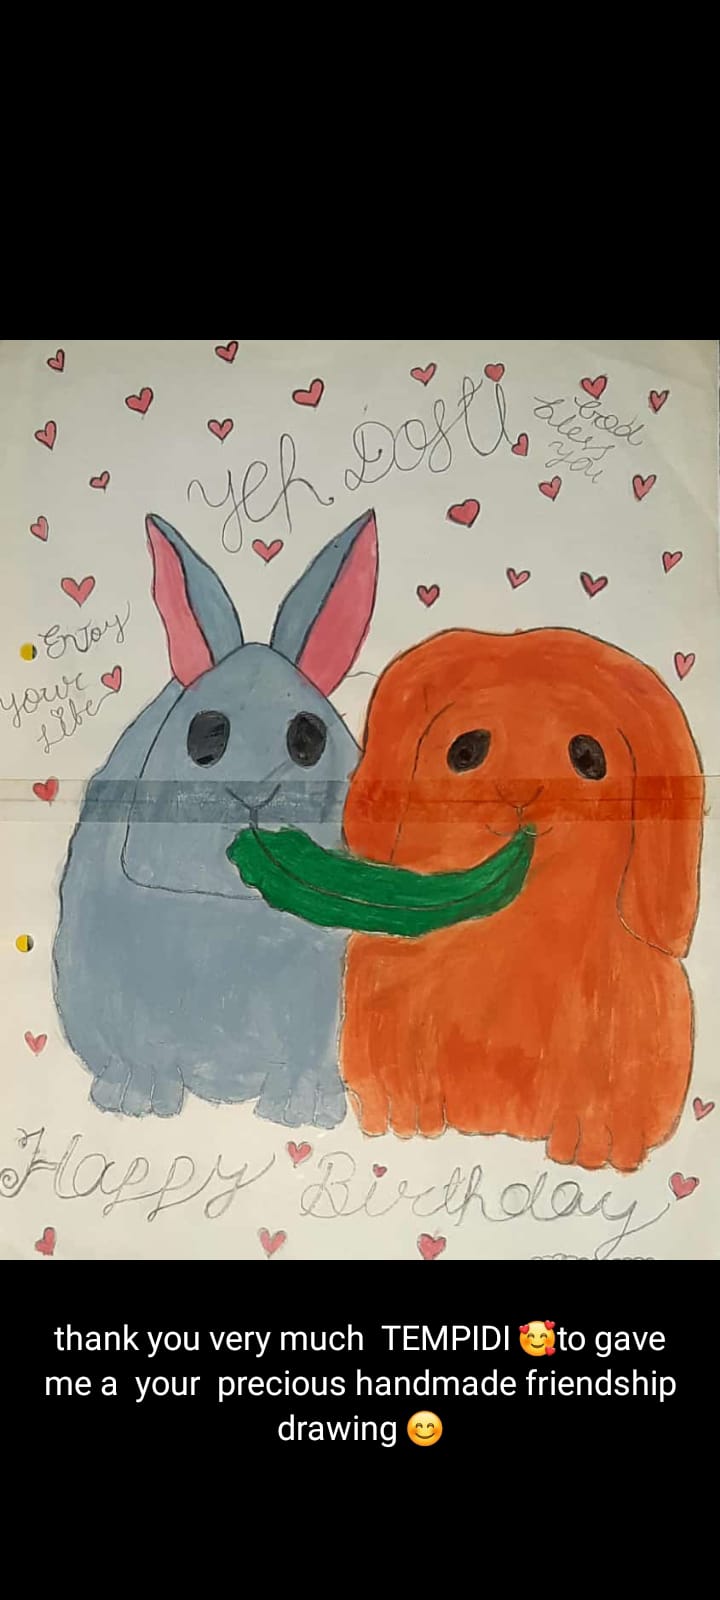 Yeh Dosti
God
bless
you
Enjoy
your
Life
Happy Birthday
thank you very much TEMPIDI 🥰to gave
me a your precious handmade friendship
drawing 😊